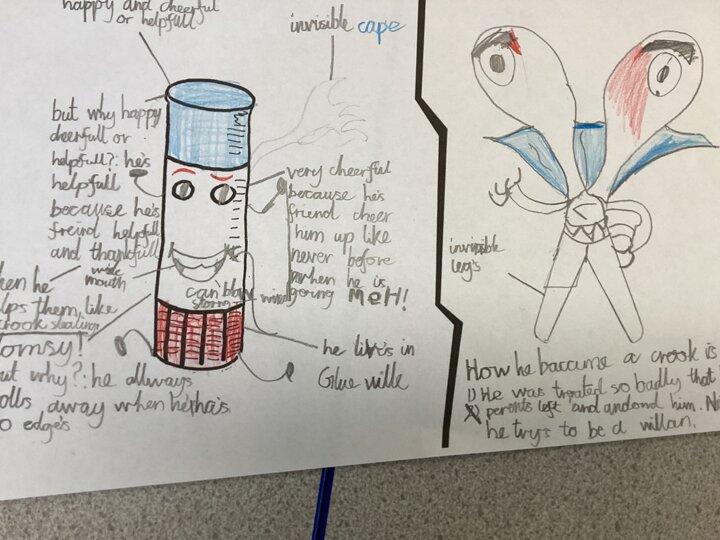 happy and cheerful
or helpfull
invisible cape
but why happy
cheerfull or
helpfull?: he's
helpfull
because he's
freind helpfull
and thankfull
wide
mouth
very cheerful
because he's
friend cheer
him up like
never before
when he is
being MeH!
can blow
storm wind
hen he
lps them like
crook stealing
omsy!
ut why?: he allways
olls away when he has
o edge's
he live's in
Glue ville
invisible
leg's
How he became a crook is
1) He was treated so badly that
perents left and andond him. No
he trys to be a villan.